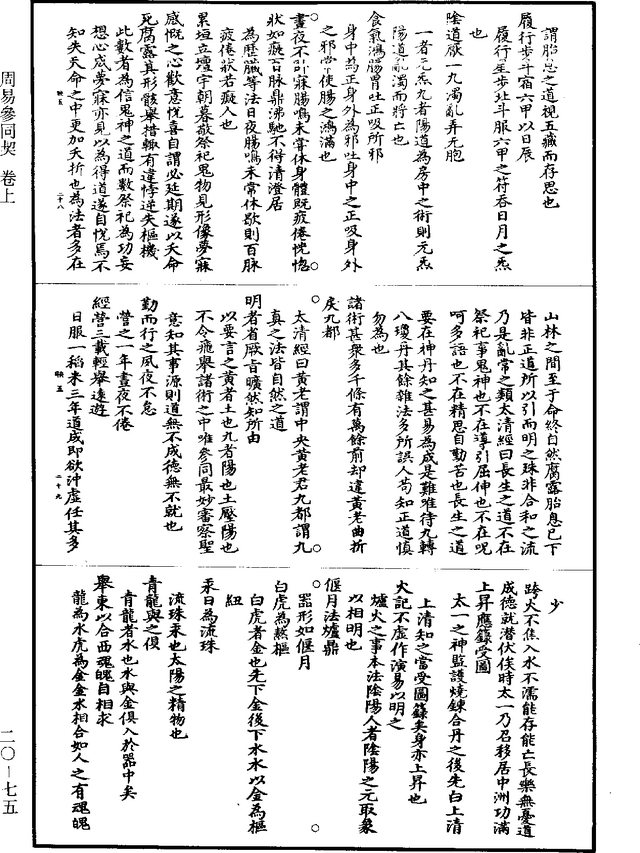 謂胎息之道視五臟而存思也
履行步斗宿六甲以日辰
履行星步址斗服六甲之符吞日月之炁
也
陰道厥一九濁亂弄元胞
一者元炁九者陽道為房中之術則元炁
陽道亂濁而將亡也
食氣鴻腸胃吐正吸所邪
身中為正身外為邪吐身中之正吸身外
之邪常使腸之鴻滿也
晝夜不卧寐腸鳴未常休身體既疲倦恍惚
狀如癡百脉鼎沸馳不得清澄居
為歷臟等法日夜腸鳴未常休歇則百脉
疲倦狀若癡人也
累垣立壇宇朝暮敬祭祀鬼物見形像夢寐
感慨之心歡意悅喜自謂必延期遂以夭命
死腐露其形骸舉措輒有違悖逆失樞機
此數者為信鬼神之道而數祭祀為功妄
想心感夢寐亦見以為得道遂自悅焉不
知失天命之中更加夭折也為法者多在
映五
二十八
山林之間至于命終自然腐露胎息已下
皆非正道所以引而明之殊非合和之流
乃是亂常之類太清經曰長生之道不在
祭祀事鬼神也不在導引屈伸也不在呪
呵多語也不在精思自勤苦也長生之道
要在神丹知之甚易為成是難唯待九轉
八瓊丹其餘雜法多所誤人苟知正道慎
勿為也
諸術甚衆多千條有萬餘前却違黃老曲折
戾九都
太清經曰黃老謂中央黃老君九都謂九
真之法皆自然之道
明者省厥旨曠然知所由
以要言之黃者土也九者陽也土壓陽也
不令飛舉諸術之中唯參同最妙審察聖
意知其事源則道無不成德無不就也
勤而行之夙夜不怠
營之一年晝夜不倦
經營三載輕舉遠遊
日服一稻米三年道成即欲沖虛任其多
映五
二十九
少
跨火不焦入水不濡能存能亡長樂無憂道
成德就潛伏俟時太一乃召移居中洲功滿
上昇應籙受圖
太一之神監護燒鍊合丹之後先白上清
上清知之當受圖籙矣身亦上昇也
火記不虛作演易以明之
爐火之事本法陰陽人者陰陽之元取象
以相明也
偃月法爐鼎
器形如偃月
白虎為熬樞
白虎者金也先下金後下水水以金為樞
紐
汞日為流珠
流珠汞也太陽之精物也
青龍與之俱
青龍者水也水與金俱入於器中矣
舉東以合西魂魄自相求
龍為水虎為金金水相合如人之有魂魄
周易參同契 卷上
二〇－七五